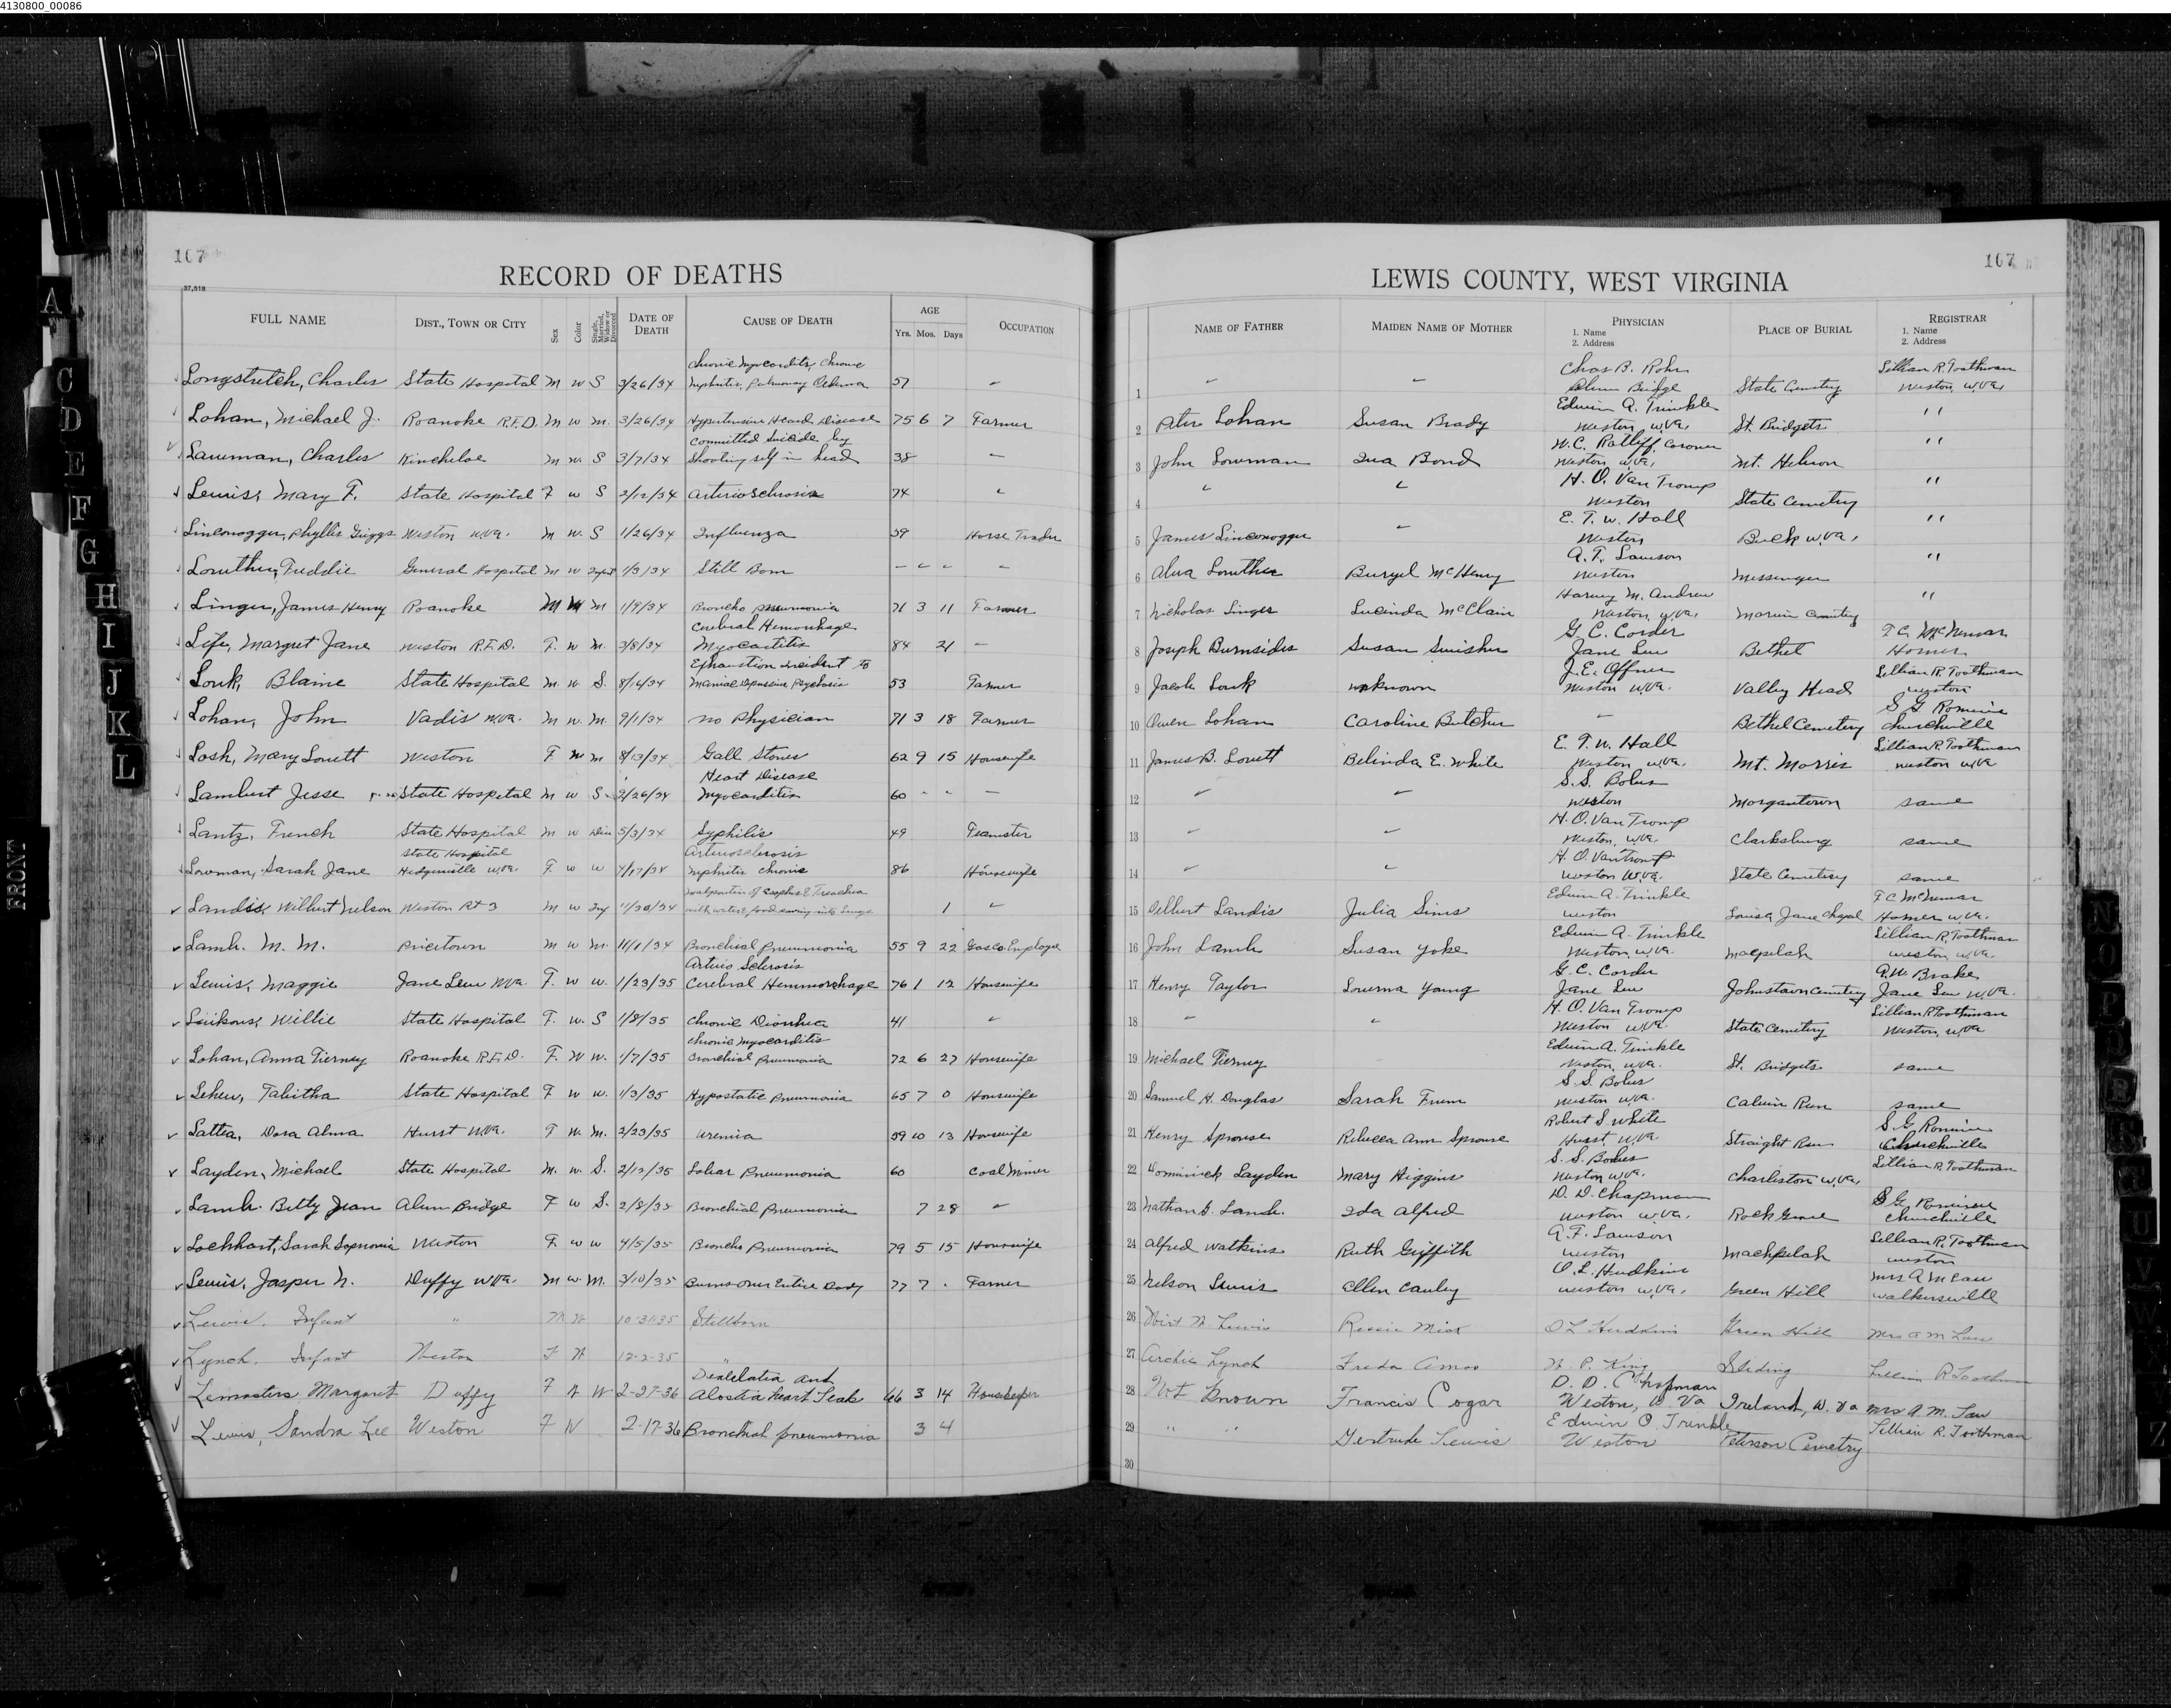 4130800_00086
107
RECORD OF DEATHS
37,518
FULL NAME DIST., TOWN OR CITY Sex Color Single, Married, Widow or Divorced DATE OF DEATH CAUSE OF DEATH AGE Yrs. Mos. Days OCCUPATION
Chronic Myocarditis, Chronic
Longstretch, Charles State Hospital M W S 3/26/34 Nephritis, Pulmonary Oedema 57 "
Lohan, Michael J. Roanoke R.F.D. M W M. 3/26/34 Hypertensive Heard Disease 75 6 7 Farmer
committed Suicide by
Lawman, Charles Kincheloe M W. S 3/7/34 Shooting self in head 38 —
Lewis, Mary F. State Hospital F W S 2/12/34 Arteriosclerosis 74 "
Linconogger, Phyllis Griggs Weston W.Va. M W. S 1/26/34 Influenza 59 Horse Trader
Lowther, Freddie General Hospital M W Infant 1/3/34 Still Born — — — —
Linger, James Henry Roanoke M W M 1/9/34 Broncho pneumonia 71 3 11 Farmer
Cerebral Hemorrhage
Life, Margret Jane Weston R.F.D. F. W M. 3/8/34 Myocartitis 84 21 —
Exhaustion incident to
Louk, Blaine State Hospital M W. S. 8/16/34 Maniac Depressive Psychosis 53 Farmer
Lohan, John Vadis W.Va. M W. M. 9/1/34 no Physician 71 3 18 Farmer
Losh, Mary Lovett Weston F W M 8/13/34 Gall Stones 62 9 15 Housewife
Heart Disease
Lambert Jesse State Hospital M W S. 2/26/34 Myocarditis 60 - - —
Lantz, French State Hospital M W Div 5/3/34 Syphilis 49 Teamster
State Hospital Arteriosclerosis
Lowman, Sarah Jane Hedgesville W.Va. F. W W 7/17/34 Nephritis Chronic 86 Housewife
Landis, Wilbert Nelson Weston Rt 3 M W Inf 11/30/34 with water, food going into lungs 1 "
Lamb. M. M. Pricetown M W M. 11/1/34 Bronchial Pneumonia 55 9 22 Gas Co. Employee
Arterio Sclerosis
Lewis, Maggie Jane Lew W.Va. F. W W. 1/23/35 Cerebral Hemmorhage 76 1 12 Housewife
Willie State Hospital F. W. S 1/8/35 Chronic Diorrhea 41 "
Chronic Myocarditis
Lohan, Anna Tierney Roanoke R.F.D. F. W W. 1/7/35 Bronchial Pneumonia 72 6 27 Housewife
Lehew, Tabitha State Hospital F W W. 1/3/35 Hypostatic Pneumonia 65 7 0 Housewife
Lattea, Dora Alma Hurst W.Va. F W. M. 2/23/35 Uremia 39 10 13 Housewife
Layden, Michael State Hospital M. W. S. 2/12/35 Lobar Pneumonia 60 Coal Miner
Lamb. Betty Jean Alum Bridge F W S. 2/8/35 Bronchial Pneumonia 7 28 "
Lockhart, Sarah Sopronia Weston F. W W 4/5/35 Broncho Pneumonia 79 5 15 Housewife
Lewis, Jasper N. Duffy W.Va. M W. M. 3/10/35 Burns Over Entire Body 77 7 . Farmer
Lewis. Infant " M W 10-31-35 Stillborn
Lynch. Infant Weston F W 12-2-35
Lemasters Margaret Duffy F W W 2-27-36 Dialelatia and Alostia heart Leak 66 3 14 Housekeeper
Lewis, Sandra Lee Weston F W 2-17-36 Bronchial pneumonia 3 4
107
LEWIS COUNTY, WEST VIRGINIA
NAME OF FATHER MAIDEN NAME OF MOTHER PHYSICIAN 1. Name 2. Address PLACE OF BURIAL REGISTRAR 1. Name 2. Address
Chas B. Rohr Lillian R. Toothman
1 " " Alum Bridge State Cemetry Weston, W.Va,
Edwin A. Trinkle
2 Peter Lohan Susan Brady Weston W.Va, St. Bridgets "
W.C. Ratliff, Coroner
3 John Lowman Iva Bond Weston W.Va, Mt. Hebron "
H. O. Van Tromp
4 " " Weston State Cemetry "
E. T. W. Hall
5 James Linconogger — Weston Buck W.Va, "
A. F. Lawson
6 Alva Lowther Buryel McHenry Weston Messenger "
Harvey M. Andrew
7 Nicholas Linger Lucinda McClain Weston, W.Va, Marvin Cemetry "
G. C. Corder F C. McNemar
8 Joseph Burnsides Susan Swisher Jane Lew Bethel Horner
J. E. Offner Lillian R. Toothman
9 Jacob Louk unknown Weston W.Va. Valley Head Weston
S G Romine
10 Owen Lohan Caroline Butcher — Bethel Cemetery Churchville
E. T. W. Hall Lillian R. Toothman
11 James B. Lovett Belinda E. White Weston W.Va. Mt. Morris Weston W.Va
S. S. Bolus
12 " " Weston Morgantown same
H. O. Van Tromp
13 " " Weston, W.Va. Clarksburg same
H. O. Van Tromp
14 " " Weston W.Va. State Cemetery same
Edwin A. Trinkle F C McNemar
15 Delbert Landis Julia Sims Weston Louisa Jane Chapel Horner W.Va.
Edwin A. Trinkle Lillian R. Toothman
16 John Lamb Susan Yoke Weston W.Va. Macpelah Weston, W.Va.
G. C. Corder A.W. Brake
17 Henry Taylor Lourna Young Jane Lew Johnstown Cemetery Jane Lew W.Va.
H. O. Van Tromp Lillian R Toothman
18 " " Weston W.Va. State Cemetery Weston, W.Va
Edwin A. Trinkle
19 Michael Tierney Weston, W.Va. St. Bridgets same
S. S. Bolus
20 Samuel H. Douglas Sarah Frum Weston W.Va. Calvin Run same
Robert S. White S. G. Romine
21 Henry Sprouse Rebecca Ann Sprouse Hurst W.Va. Straight Run Churchville
S. S. Bolus Lillian R. Toothman
22 Dominick Layden Mary Higgins Weston W.Va. Charleston W.Va,
D. D. Chapman S G. Romine
23 Nathan G. Lamb. Ida Alfred Weston W.Va. Rock Grove Churchville
A. F. Lawson Lillian R. Toothman
24 Alfred Watkins Ruth Griffith Weston Machpelah Weston
O. L. Hudkins Mrs A M Law
25 Nelson Lewis Ellen Cauley Weston W.Va, Green Hill Walkersville
26 Lewis Ressie Mick O L Hudkins Green Hill Mrs A M Law
27 Archie Lynch Freda Amos W. P. King Lillian R Toothman
D. D. Chapman
28 Not Known Francis Cogar Weston, W Va Ireland, W. Va Mrs A. M. Law
29 " " Gertrude Lewis Edwin O. Trinkle Weston Peterson Cemetry Lillian R. Toothman
30
A
C
D
E
F
G
H
I
J
K
L
FRONT
N
O
P
Q
R
U
V
W
Z